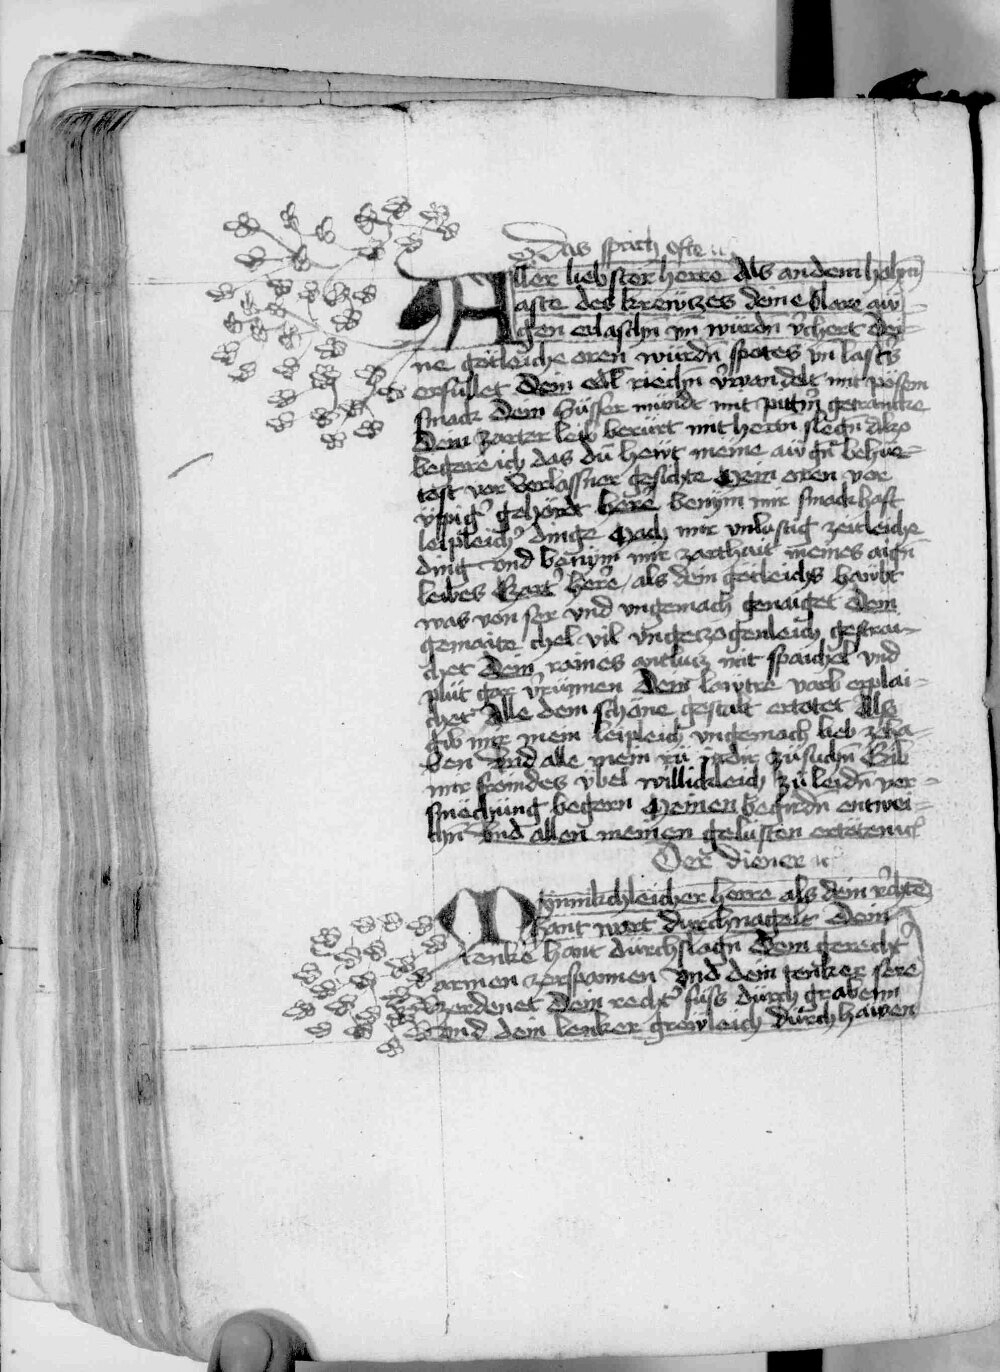 Das sprich ofte
Aller liebster herre Als an dem hohen
aste des krewczes deine clare aw=
gen erlaschn vn̄ würdn v̓chert dei=
ne götleiche oren würdn spotes vn̄ lasters
erfullet Dein edl̄ riechn̄ v̓wandelt mit pösem
smack Dein Süsser mündt mit pitterm getrancke
Dein zarter leib berürt mit hertn̄ slegn̄ Also
begere ich das dū hewt meine awgn̄ behüe=
test vor verlassner gesichte Mein oren vor
üppig̓ gehörde here benÿm mir smackhaft
leipleich̓ dinge Mach mir vnlustig zeitleiche
ding vnd benÿm mir zarthait meines aign̄
leibes Zart̓ here als dein götleichs hawbt
was von ser vnd vngemach genaiget Dein
gemaite chel vil vngeczogenleich gestrai=
chet Dein raines antlucz mit spaichel vnd
plüt gar v̓rünnen Dein lawtre varb erplai=
chet Alle dein schöne gestalt ertotet Also
gib mir mein leipleich vngemach lieb zeha=
ben vnd alle mein rü in dir züsuchn̄ Gib
mir frömdes vbel willickleich zü leidn̄ ver=
smëchüng begern Meinen begirdn̄ entwei=
chn̄ vnd allen meinen gelüsten ertötenn
Der diener
Mÿnnikchleicher herre als dein rechte
hant wart durchnagelt Dein
tenke hant dürchslagn̄ Dein gerecht̓
armen zerspannen vnd dein tenker sere
zerdenet Dein recht̓ füss dürch grabenn
vnd dein tenker grewleich dürchhawen